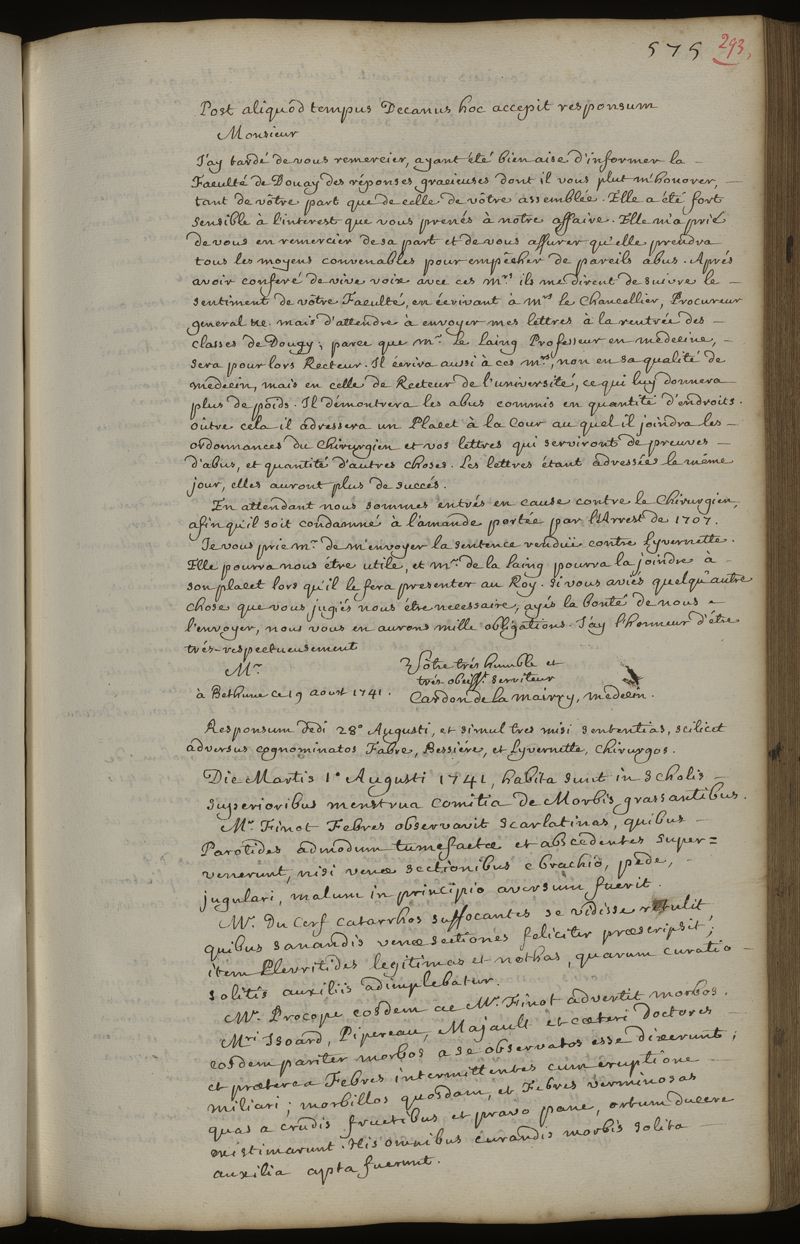 575 293,
Post aliquod tempus Decanus hoc accepit responsum
Monsieur
J'ay tardé de vous remercier, ayant été bien aise d'informer la –
Faculté de Douay des réponses gracieuses dont il vous plut m'honorer, –
tant de vôtre part que de celle de vôtre assemblée. Elle a été fort
sensible à l'interest que vous prenés à notre affaire. Elle m'a prié
de vous en remercier de sa part et de vous assurer qu'elle prendra
tous les moyens convenables pour empêcher de pareils abus. Aprés
avoir conferé de vive voix avec ces mrs ils me dirent de suivre le –
sentiment de vôtre Faculté, en écrivant à mrs le Chancellier, Procureur
general &c. mais d'attendre à envoyer mes lettres à la rentrée des –
classes de Douay; parce que mr. le Laing Professeur en médecine, –
sera pour lors Recteur. Il écrira aussi à ces mrs, non en sa qualité de
médecin, mais en celle de Recteur de l'université, ce qui luy donnera
plus de poids. Il démontrera les abus commis en quantité d'endroits.
Outre cela il adressera un Placet à la Cour au quel il joindra les –
ordonnances du Chirurgien et vos lettres qui serviront de preuves –
d'abus, et quantité d'autres choses. Les lettres étant adressées le même
jour, elles auront plus de succés.
En attendant nous sommes entrés en cause contre le Chirurgien,
afin qu'il soit condamné à l'amande portée par l'Arrest de 1707.
Je vous prie mr. de m'envoyer la sentence renduë contre Lyvernette.
Elle pourra nous être utile, et mr. de la Laing pourra la joindre à –
son placet lors qu'il le fera presenter au Roy. Si vous aviés quelqu'autre
chose que vous jugiés nous être necessaire, ayés la bonté de nous –
l'envoyer, nous vous en aurons mille obligations. J'ay l'honneur d'être
trés-respectueusement
Mr. Vôtre trés humble et
trés obeisst. serviteur
à Bethune ce 19 aoust 1741. Cardon de la mairry, médecin.
Responsum dedi 28° Augusti, et simul tres misi sententias, scilicet
adversus cognominatos Fabre, Bessiére, et Lyvernette, Chirurgos.
Die Martis 1ª Augusti 1741, habita sunt in Scholis –
superioribus menstrua Comitia de Morbis grassantibus.
Mr. Finot Febres observavit Scarlatinas, quibus –
Parotides admodum tumefactæ et abscedentes super=
venerunt, nisi venæ sectionibus e brachio, pede, –
jugulari, malum in principio aversum fuerit.
Mr. Du Cerf Catarrhos suffocantes se vidisse retulit,
quibus sanandis venæ sectiones feliciter præscripsit;
item Plevritides legitimas et nothas, quarum curatio –
solitis auxiliis adimplebatur.
Mr. Procope eosdem ac Mr. Finot advertit morbos.
Mri Isoard, Pipereau, Majault et cæteri Doctores
eosdem pariter morbos a se observatos esse dixerunt;
et præterea Febres intermittentes cum eruptione –
miliari; morbillos quosdam, et Febres verminosas
quas a crudis fructibus, et pravo pane, ortum ducere
existimarunt. His omnibus curandis morbis solita –
auxilia apta fuerunt.